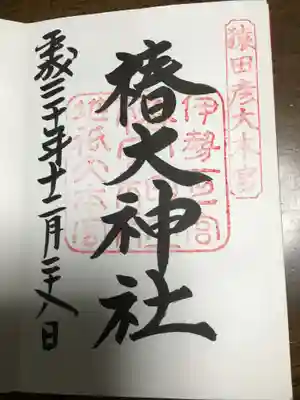 猿田彦大本宮
伊勢一宮
椿大神社
平成三十年十二月二十八日